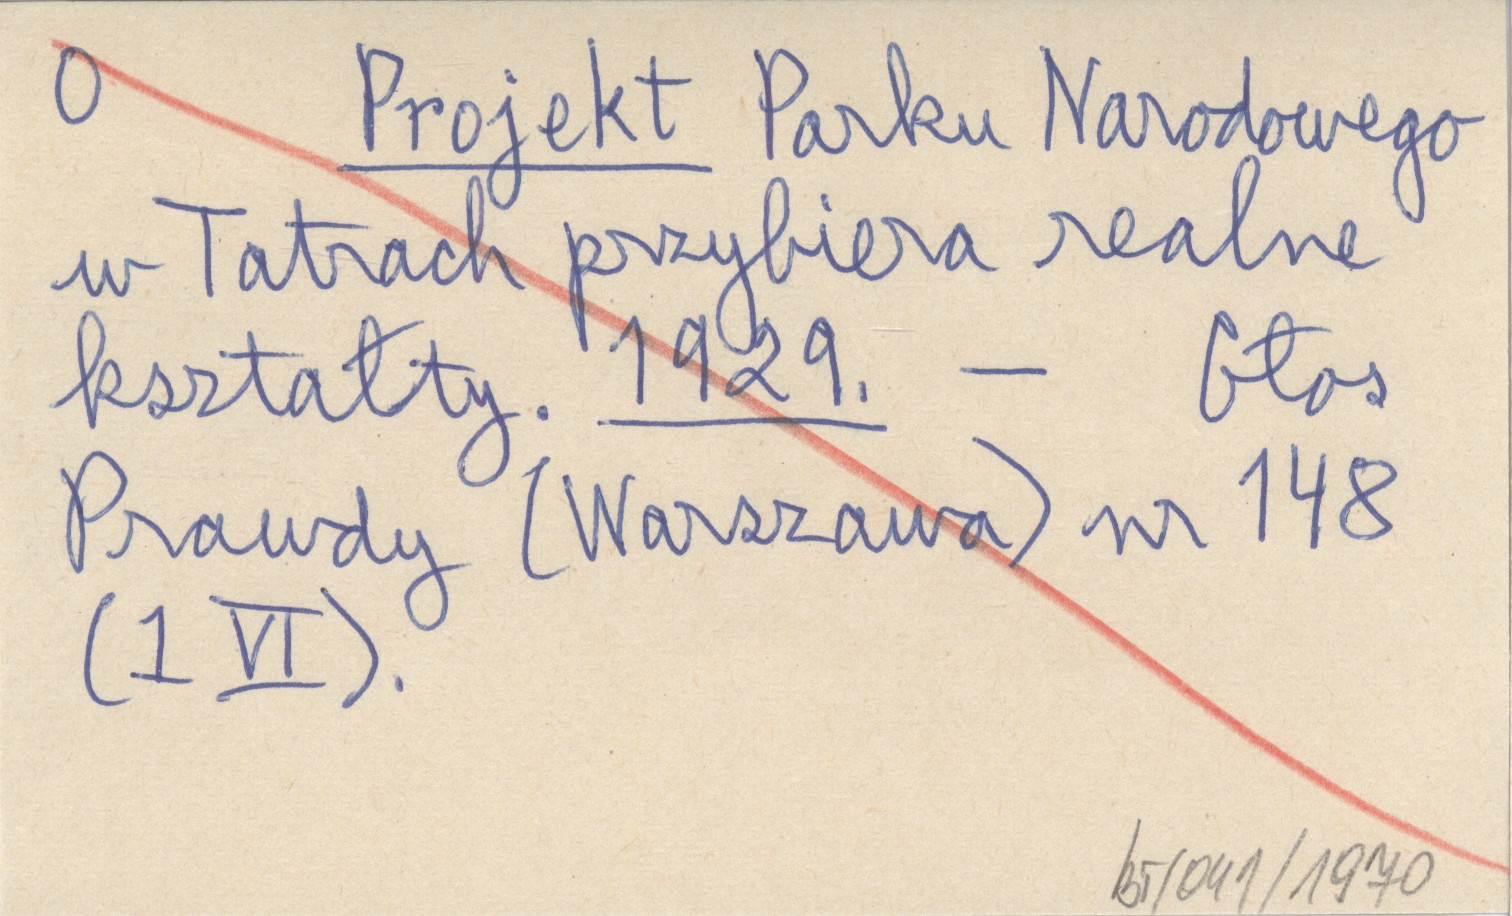 0 Projekt Parku Narodowego
w Tatrach przybiera realne
kształty. 1929. — Głos
Prawdy (Warszawa) nr 148
(1 VI).
/041/1970